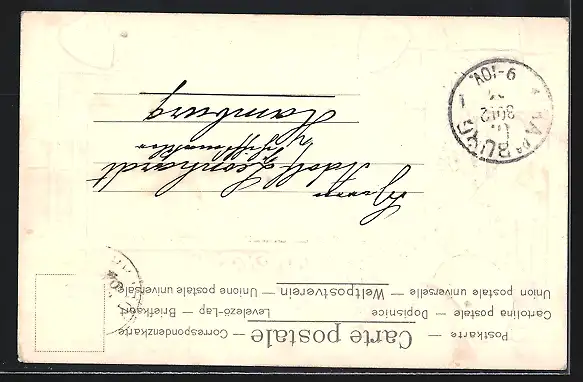 Postkarte — Carte postale — Correspondenzkarte
Cartolina postale — Dopisnice Levelező-Lap — Briefkaart
Union postale universelle — Weltpostverein — Unione postale universale
Herrn
Adolf Leonhardt
Hamburg
HARBURG
30.12
9-10V.
1